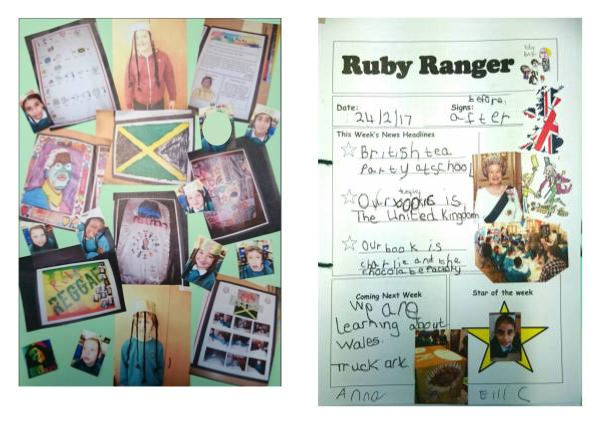 REGGAE
Ruby Ranger
Date:
24/2/17
Signs:
before,
after
This Week's News Headlines
British tea
Party at school
Our topic is,
The United Kingdom
Our book is
charlie and the
chocolate factory
Coming Next Week
We are
Learning about
Wales.
Truck ark.
Star of the week
Anna